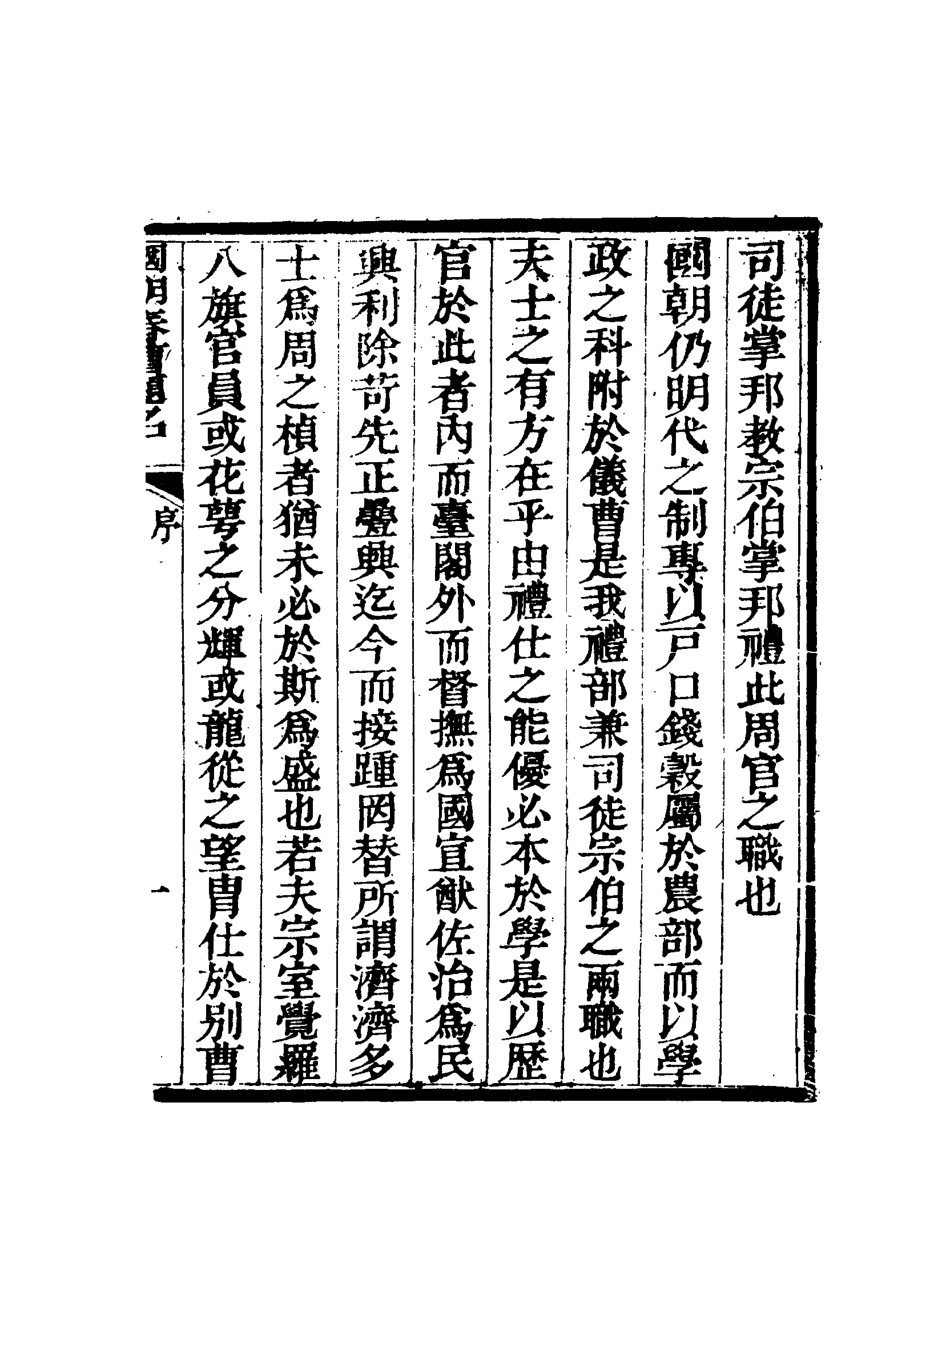 司徒掌邦教宗伯掌邦禮此周官之職也
國朝仍明代之制專以戸口錢穀屬於農部而以學
政之科附於儀曹是我禮部兼司徒宗伯之兩職也
夫士之有方在乎由禮仕之能優必本於學是以歷
官於此者內而臺閣外而督撫爲國宣猷佐治爲民
興利除苛先正疊興迄今而接踵罔替所謂濟濟多
士爲周之楨者猶未必於斯爲盛也若夫宗室覺羅
八旗官員或花萼之分輝或龍從之望冑仕於別曹
國朝春曹題名
序
一